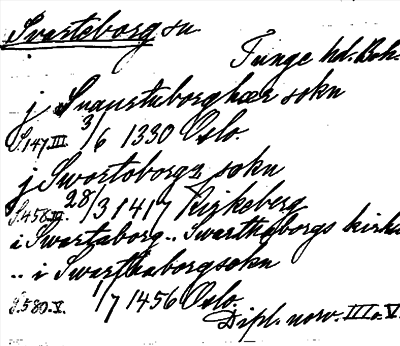 Svarteborg sn
Tunge hd. Boh.
j Suarstuborghær sokn
S. 147. III. 3/6 1330 Oslo.
j Swortoborgz sokn
S. 458. III. 28/3 1417 Kirkeberg
i Swartaborg .. Swarthaborgs kirkio
.. i Swarthaborgsokn
S. 580. V. 1/7 1456 Oslo.
Dipl. norv. III o. V.